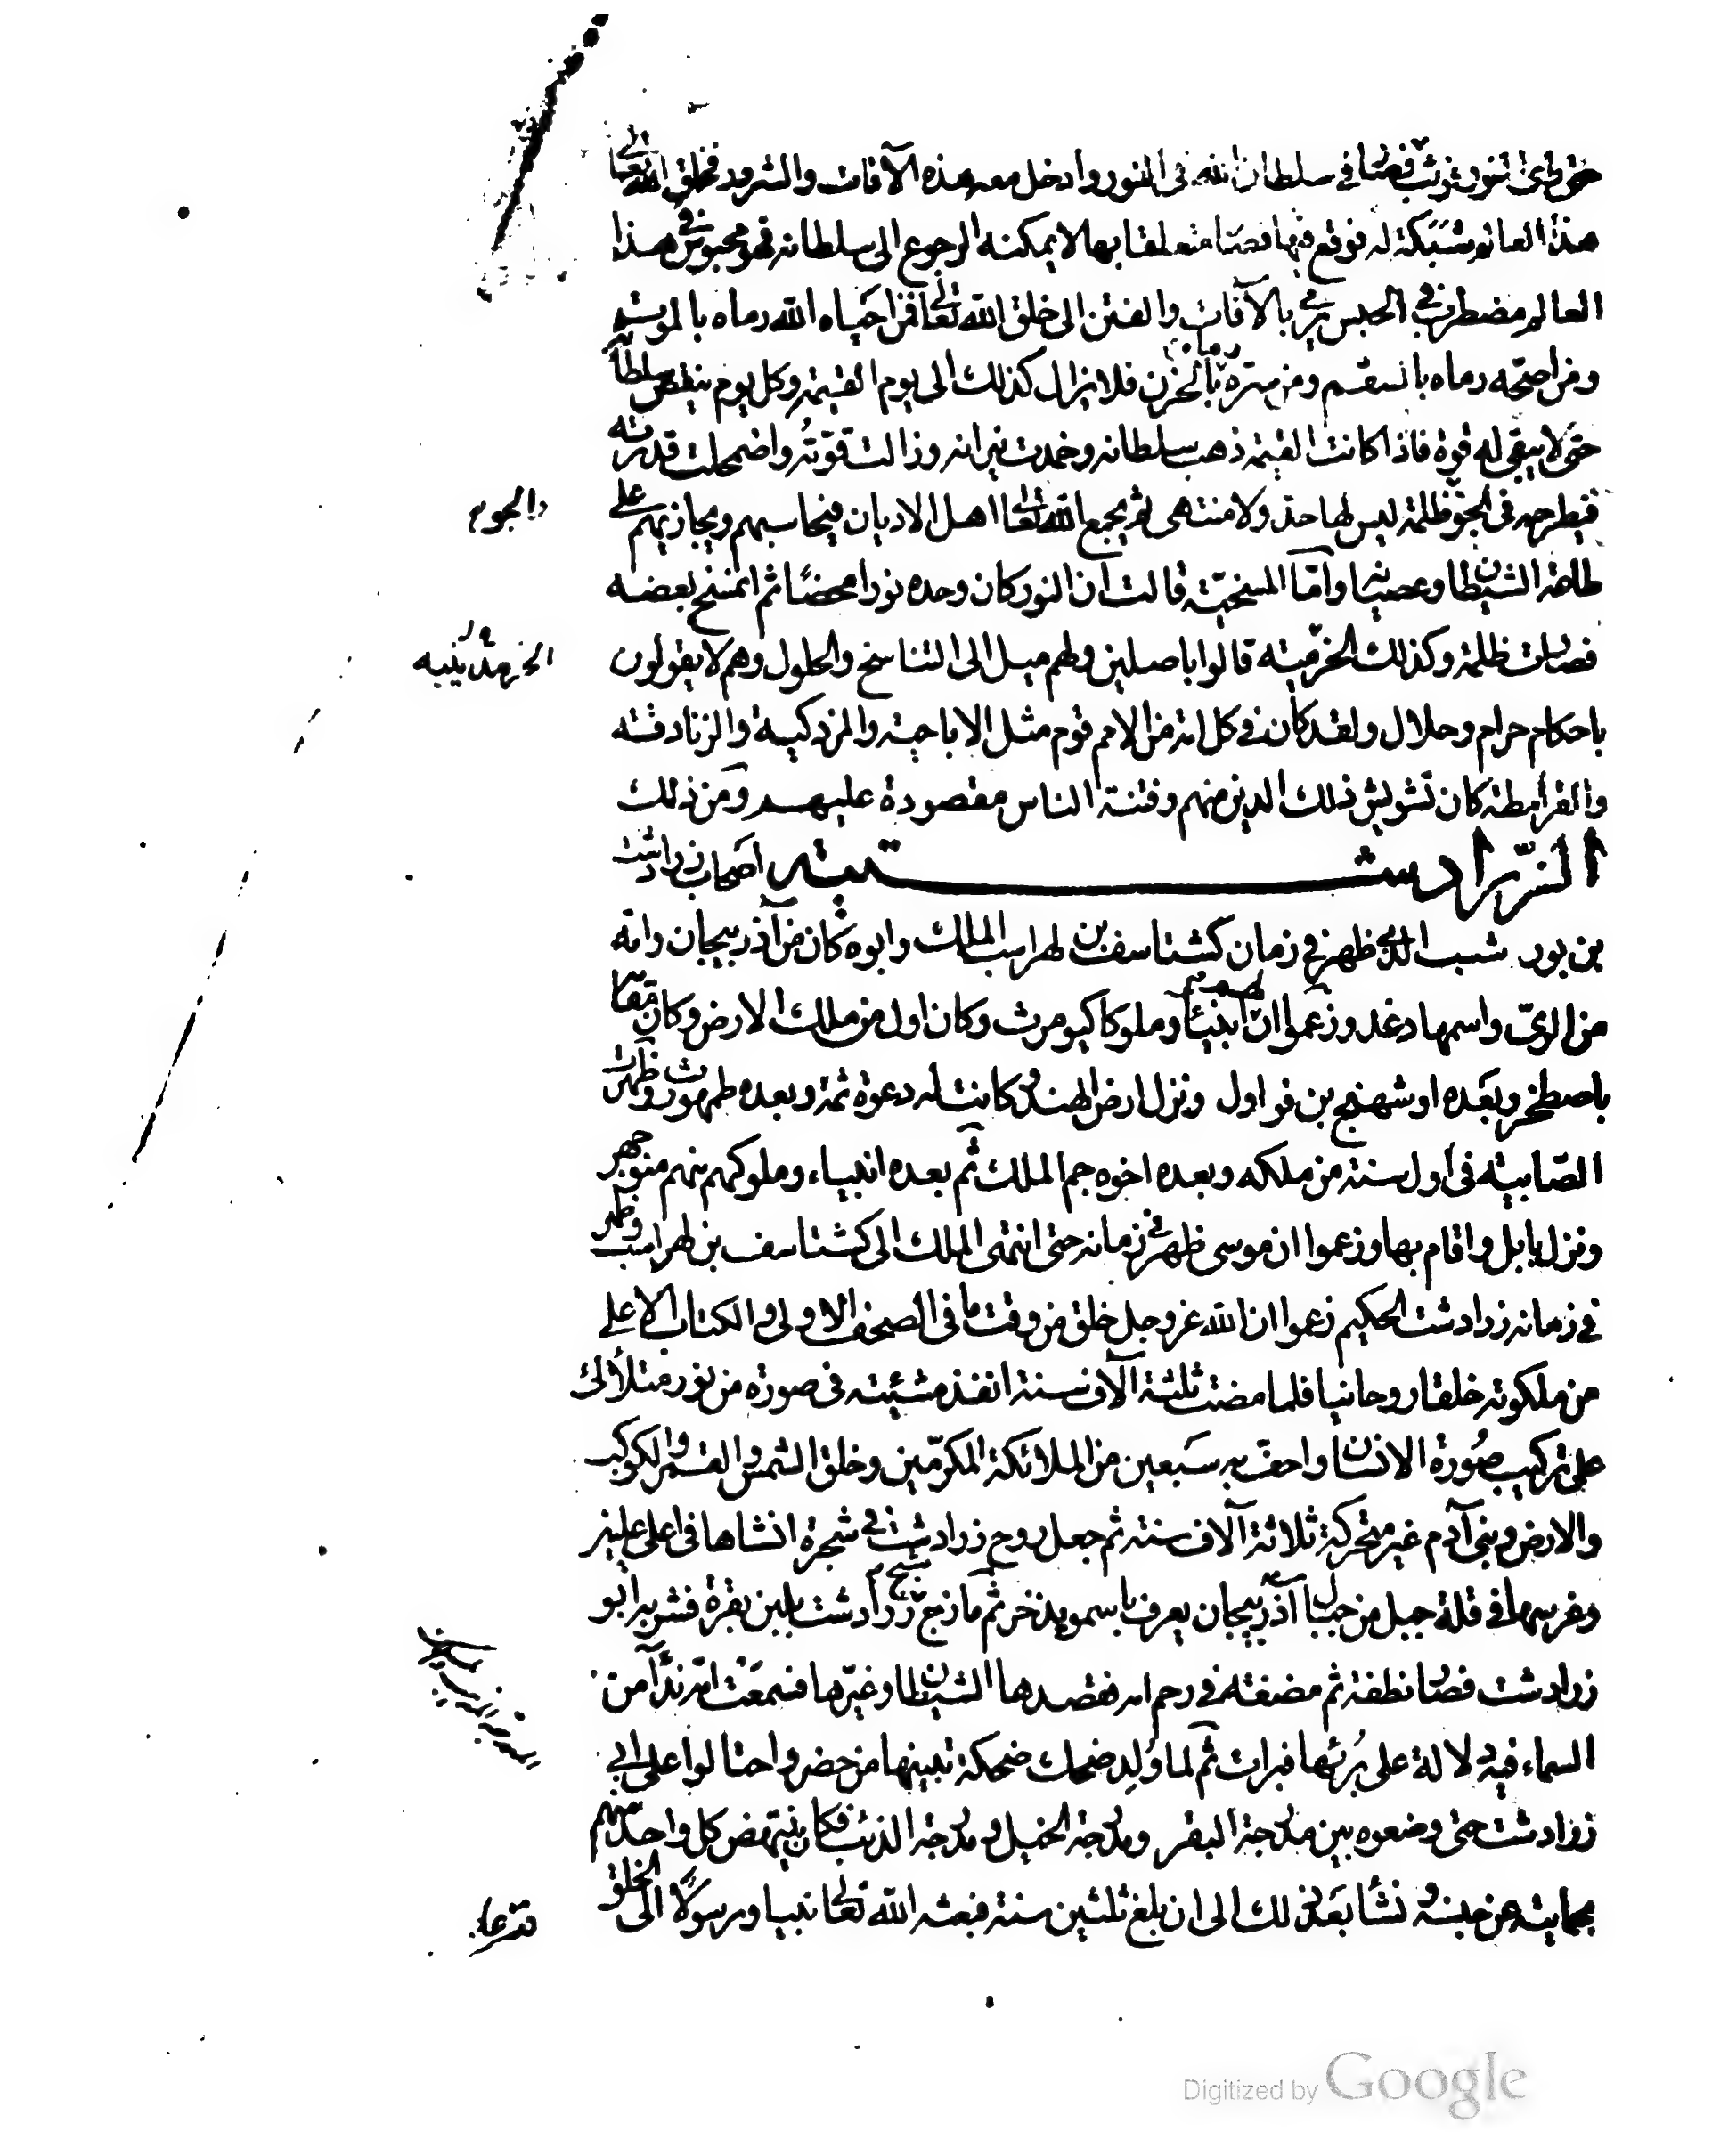 حتى رأى النور فوثب فصار في سلطان الله في النور وادخل معه هذه الآفات والشرور فخلق الله تعالى
هذا العالم شبكة له فوقع فيها فصار متعلقا بها لا يمكنه الرجوع الى سلطانه فهو محبوس في هذا
العالم مضطرب في الحبس يرمي بالآفات والفتن الى خلق الله تعالى فمن احياه الله رماه بالموت
ومن اصحّه رماه بالسقم ومن سرّه رماه بالحزن فلا يزال كذلك الى يوم القيمة وكل يوم ينقص سلطانه
حتى لا يبقى له قوة فاذا كانت القيمة ذهب سلطانه وخمدت نيرانه وزالت قوّته واضمحلت قدرته
فيطرحه في الجوّ ظلمة ليس لها حد ولا منتهى ثم يجمع الله تعالى اهل الاديان فيحاسبهم ويجازيهم على
والجو
طاعة الشيطان وعصيانه وامّا المسخيّة قالت ان النور كان وحده نورا محضًا ثم انمسخ بعضه
فصارت ظلمة وكذلك الخرّميّة قالوا باصلين ولهم ميل الى التناسخ والحلول وهم لا يقولون
باحكام حرام وحلال ولقد كان في كل امة من الامم قوم مثل الاباحية والمزدكية والزنادقة
والقرامطة كان تشويش ذلك الدين منهم وفتنة الناس مقصودة عليهم ومن ذلك
الزّرادشتية اصحاب زرادشت
بن بورشسب الذي ظهر في زمان كشتاسف بن لهراسب الملك وابوه كان من آذربيجان وامّه
من الريّ واسمها دغد وزعموا ان لهم انبيئًا وملوكا كيومرث وكان اول من ملك الارض وكان مقامه
باصطخر وبعَده اوشهنج بن فراول ونزل ارض الهند وكانت له دعوة ثمة وبعده طمهورث وظهرت
الصّابية في اول سنة من ملكه وبعده اخوه جم الملك ثم بعده انبياء وملوكهم منهم منوجهر
ونزل بابل واقام بها وزعموا ان موسى ظهر في زمانه حتى انتهى الملك الى كشتاسف بن لهراسب وظهر
في زمانه زرادشت الحكيم زعموا ان الله عز وجل خلق من وقت ما في الصحف الاولى والكتاب الاعلى
من ملكوته خلقا روحانيا فلما مضت ثلثة آلاف سنة انفذ مشيئته في صورة من نور متلألئ
على تركيب صُورة الانسان واحفّ به سَبعين من الملائكة المكرّمين وخلق الشمس والقمر والكوكب
والارض وبني آدم غير متحركة ثلاثة آلاف سنة ثم جعل روح زرادشت في شجرة انشاها في اعلى عليين
وغرسها في قلة جبل من جبال آذربيجان يعرف باسمويذخر ثم مازج شبح زرادشت بلبن بقرة فشربه ابو
زرادشت فصار نطفة ثم مضغة في رحم امه فقصدها الشيطان وغيّرها فسمعَت امّه ندآ من
السماء فيه دلالة على بُرئها فبرات ثم لما وُلد ضحك ضحكة تبينها من حضر واحتالوا على ابي
زرادشت حتى وضعوه بين مدرجة البقر ومدرجة الخيل ومدرجة الذئب فكان ينتهض كل واحد منهم
بحمايته عن جنسه ونشأ بَعَد ذلك الى ان بلغ ثلثين سنة فبعثه الله تعالى نبيا ورسولاً الى الخلق
فدعا
Digitized by Google